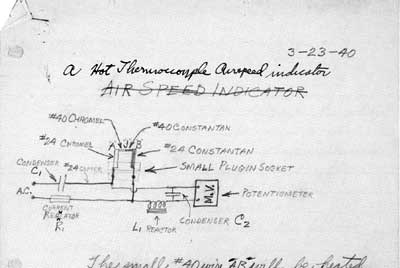 3-23-40
a Hot Thermocouple Airspeed indicator
AIR SPEED INDICATOR
#40 CHROMEL
#40 CONSTANTAN
#24 CHROMEL
A J B
#24 CONSTANTAN
CONDENSER
C1
#24 COPPER
SMALL PLUG IN SOCKET
A.C.
M.V.
POTENTIOMETER
CURRENT
REGULATOR
R1
L1 REACTOR
CONDENSER C2
The small #40 wire "AB" will be heated